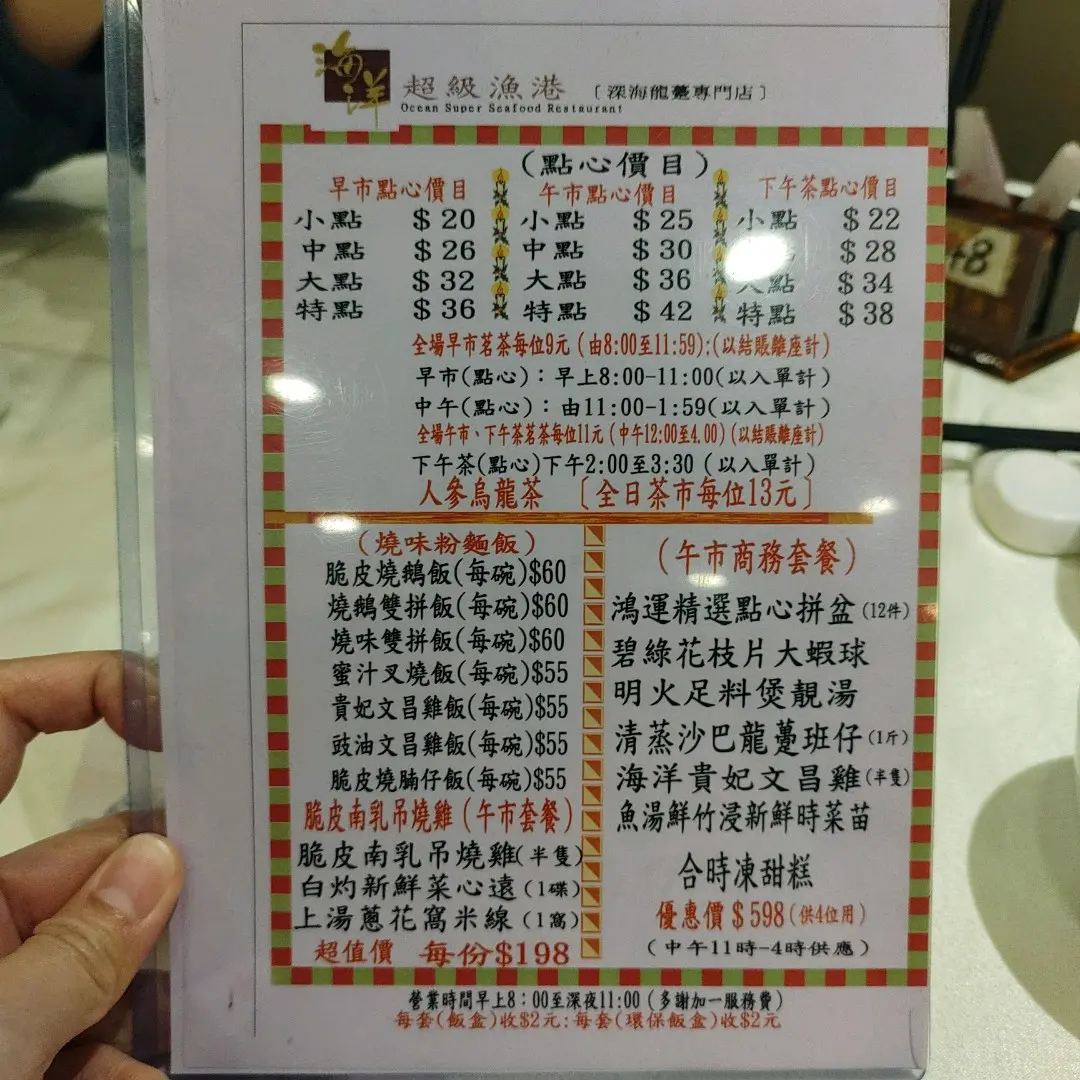 海洋 超級漁港 〔深海龍躉專門店〕
Ocean Super Seafood Restaurant
(點心價目)
早市點心價目 午市點心價目 下午茶點心價目
小點 $20 小點 $25 小點 $22
中點 $26 中點 $30 點 $28
大點 $32 大點 $36 大點 $34
特點 $36 特點 $42 特點 $38
全場早市茗茶每位9元(由8:00至11:59):(以結賬離座計)
早市(點心):早上8:00-11:00(以入單計)
中午(點心):由11:00-1:59(以入單計)
全場午市、下午茶茗茶每位11元(中午12:00至4.00)(以結賬離座計)
下午茶(點心)下午2:00至3:30(以入單計)
人參烏龍茶 〔全日茶市每位13元〕
(燒味粉麵飯)
脆皮燒鵝飯(每碗)$60
燒鵝雙拼飯(每碗)$60
燒味雙拼飯(每碗)$60
蜜汁叉燒飯(每碗)$55
貴妃文昌雞飯(每碗)$55
豉油文昌雞飯(每碗)$55
脆皮燒腩仔飯(每碗)$55
脆皮南乳吊燒雞(午市套餐)
脆皮南乳吊燒雞(半隻)
白灼新鮮菜心遠(1碟)
上湯蔥花窩米線(1窩)
超值價 每份$198
(午市商務套餐)
鴻運精選點心拼盆(12件)
碧綠花枝片大蝦球
明火足料煲靚湯
清蒸沙巴龍躉班仔(1斤)
海洋貴妃文昌雞(半隻)
魚湯鮮竹浸新鮮時菜苗
合時凍甜糕
優惠價$598(供4位用)
(中午11時-4時供應)
營業時間早上8:00至深夜11:00(多謝加一服務費)
每套(飯盒)收$2元:每套(環保飯盒)收$2元
48